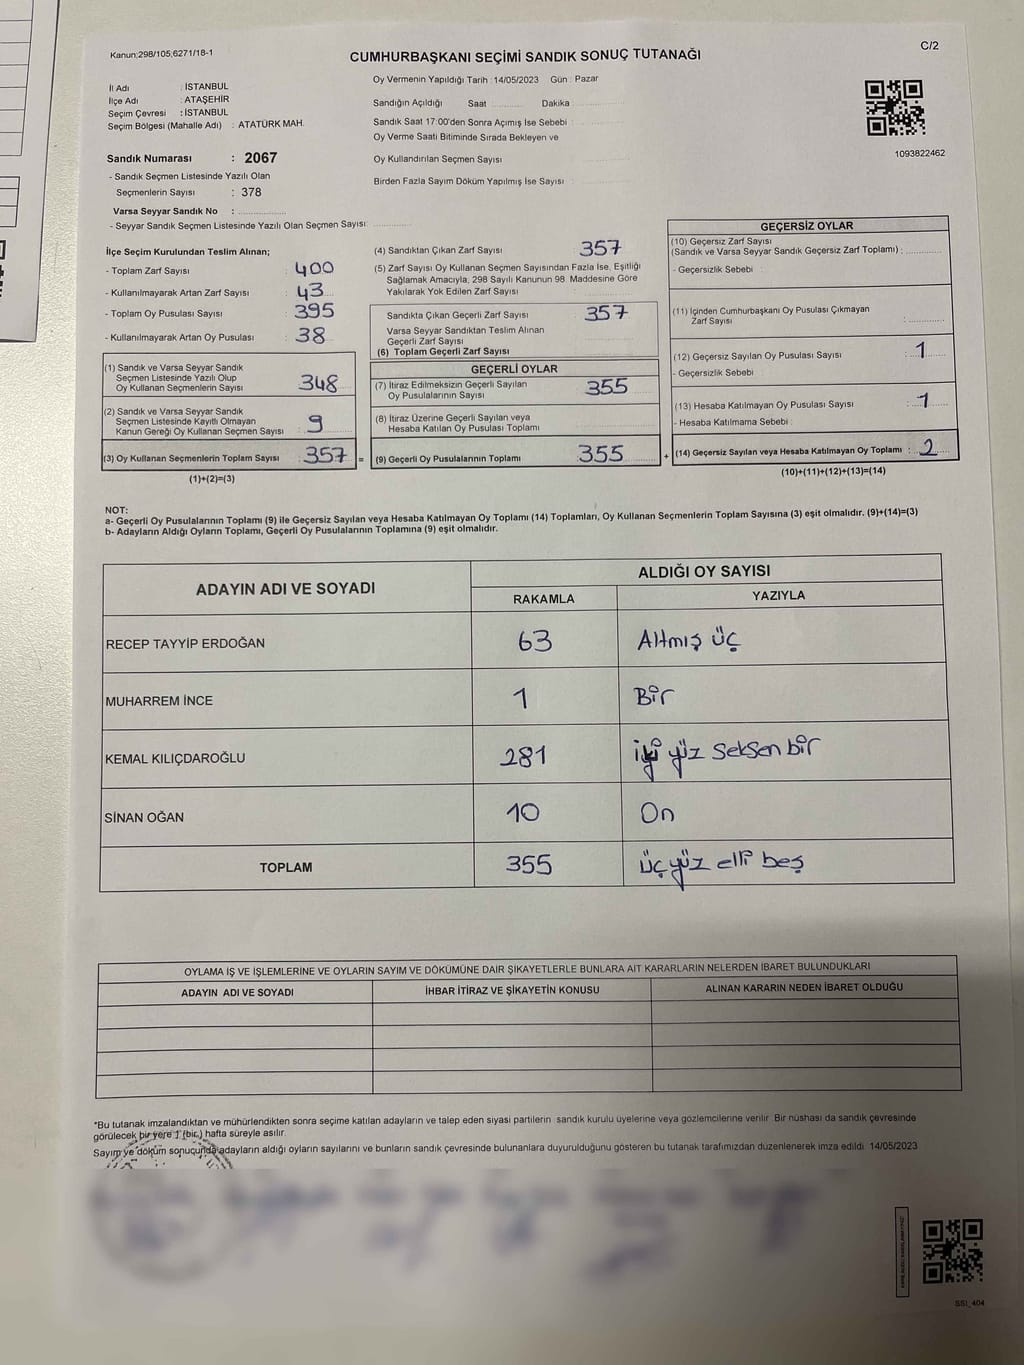 Kanun:298/105;6271/18-1
C/2
CUMHURBAŞKANI SEÇİMİ SANDIK SONUÇ TUTANAĞI
İl Adı : İSTANBUL
İlçe Adı : ATAŞEHİR
Seçim Çevresi : İSTANBUL
Seçim Bölgesi (Mahalle Adı) : ATATÜRK MAH.
Sandık Numarası : 2067
- Sandık Seçmen Listesinde Yazılı Olan
Seçmenlerin Sayısı : 378
Varsa Seyyar Sandık No :
- Seyyar Sandık Seçmen Listesinde Yazılı Olan Seçmen Sayısı:
Oy Vermenin Yapıldığı Tarih : 14/05/2023 Gün : Pazar
Sandığın Açıldığı Saat Dakika
Sandık Saat 17:00'den Sonra Açımış İse Sebebi :
Oy Verme Saati Bitiminde Sırada Bekleyen ve
Oy Kullandırılan Seçmen Sayısı
Birden Fazla Sayım Döküm Yapılmış İse Sayısı :
1093822462
İlçe Seçim Kurulundan Teslim Alınan;
- Toplam Zarf Sayısı : 400
- Kullanılmayarak Artan Zarf Sayısı : 43
- Toplam Oy Pusulası Sayısı : 395
- Kullanılmayarak Artan Oy Pusulası : 38
(1) Sandık ve Varsa Seyyar Sandık
Seçmen Listesinde Yazılı Olup
Oy Kullanan Seçmenlerin Sayısı : 348
(2) Sandık ve Varsa Seyyar Sandık
Seçmen Listesinde Kayıtlı Olmayan
Kanun Gereği Oy Kullanan Seçmen Sayısı : 9
(3) Oy Kullanan Seçmenlerin Toplam Sayısı : 357 =
(1)+(2)=(3)
(4) Sandıktan Çıkan Zarf Sayısı 357
(5) Zarf Sayısı Oy Kullanan Seçmen Sayısından Fazla İse, Eşitliği
Sağlamak Amacıyla, 298 Sayılı Kanunun 98. Maddesine Göre
Yakılarak Yok Edilen Zarf Sayısı
Sandıkta Çıkan Geçerli Zarf Sayısı : 357
Varsa Seyyar Sandıktan Teslim Alınan
Geçerli Zarf Sayısı
(6) Toplam Geçerli Zarf Sayısı
GEÇERLİ OYLAR
(7) İtiraz Edilmeksizin Geçerli Sayılan
Oy Pusulalarının Sayısı : 355
(8) İtiraz Üzerine Geçerli Sayılan veya
Hesaba Katılan Oy Pusulası Toplamı
(9) Geçerli Oy Pusulalarının Toplamı : 355 +
GEÇERSİZ OYLAR
(10) Geçersiz Zarf Sayısı
(Sandık ve Varsa Seyyar Sandık Geçersiz Zarf Toplamı) :
- Geçersizlik Sebebi :
(11) İçinden Cumhurbaşkanı Oy Pusulası Çıkmayan
Zarf Sayısı :
(12) Geçersiz Sayılan Oy Pusulası Sayısı : 1
- Geçersizlik Sebebi :
(13) Hesaba Katılmayan Oy Pusulası Sayısı : 1
- Hesaba Katılmama Sebebi :
(14) Geçersiz Sayılan veya Hesaba Katılmayan Oy Toplamı : 2
(10)+(11)+(12)+(13)=(14)
NOT:
a- Geçerli Oy Pusulalarının Toplamı (9) ile Geçersiz Sayılan veya Hesaba Katılmayan Oy Toplamı (14) Toplamları, Oy Kullanan Seçmenlerin Toplam Sayısına (3) eşit olmalıdır. (9)+(14)=(3)
b- Adayların Aldığı Oyların Toplamı, Geçerli Oy Pusulalarının Toplamına (9) eşit olmalıdır.
ADAYIN ADI VE SOYADI
ALDIĞI OY SAYISI
RAKAMLA YAZIYLA
RECEP TAYYİP ERDOĞAN 63 Altmış üç
MUHARREM İNCE 1 Bir
KEMAL KILIÇDAROĞLU 281 iki yüz seksen bir
SİNAN OĞAN 10 On
TOPLAM 355 üç yüz elli beş
OYLAMA İŞ VE İŞLEMLERİNE VE OYLARIN SAYIM VE DÖKÜMÜNE DAİR ŞİKAYETLERLE BUNLARA AİT KARARLARIN NELERDEN İBARET BULUNDUKLARI
ADAYIN ADI VE SOYADI İHBAR İTİRAZ VE ŞİKAYETİN KONUSU ALINAN KARARIN NEDEN İBARET OLDUĞU
*Bu tutanak imzalandıktan ve mühürlendikten sonra seçime katılan adayların ve talep eden siyasi partilerin sandık kurulu üyelerine veya gözlemcilerine verilir. Bir nüshası da sandık çevresinde
görülecek bir yere 1 (bir) hafta süreyle asılır.
Sayım ve döküm sonucunda adayların aldığı oyların sayılarını ve bunların sandık çevresinde bulunanlara duyurulduğunu gösteren bu tutanak tarafımızdan düzenlenerek imza edildi. 14/05/2023
SSI_404